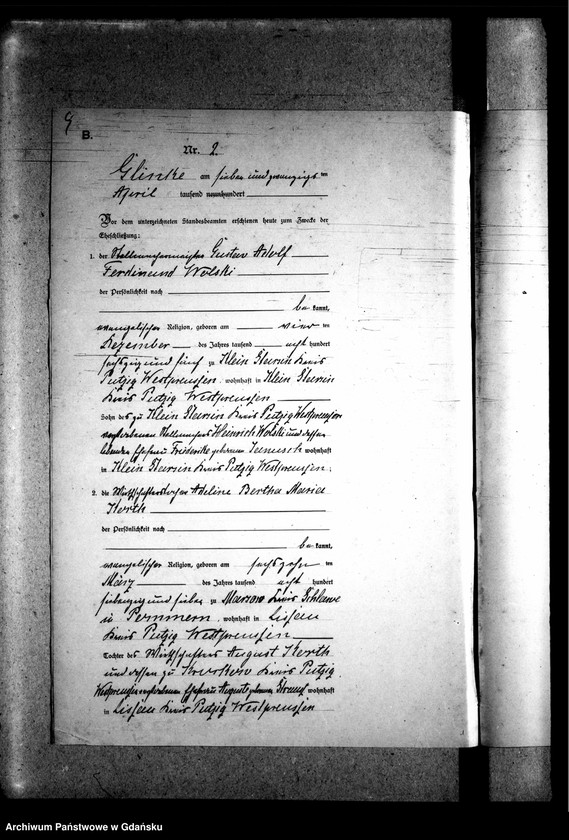 B.
Nr. 2.
Glinke am sieben und zwanzigs ten
April tausend neunhundert
Vor dem unterzeichneten Standesbeamten erschienen heute zum Zwecke der
Eheschließung:
1. der Gustav Adolf
Ferdinand Wolski
der Persönlichkeit nach
be kannt,
evangelischer Religion, geboren am vier ten
Dezember des Jahres tausend acht hundert
sechszig und fünf zu Klein Kreis
Putzig Westpreussen, wohnhaft in Klein
Kreis Putzig Westpreussen
Sohn des zu Klein Kreis Putzig Westpreussen
verstorbenen Heinrich Wolski und dessen
Ehefrau Friederike geborenen wohnhaft
in Klein Kreis Putzig Westpreussen.
2. die Wirthschafterstochter Adeline Bertha Maria
der Persönlichkeit nach
be kannt,
evangelischer Religion, geboren am sechszehn ten
März des Jahres tausend acht hundert
siebenzig und sieben zu Kreis Schlawe
in Pommern, wohnhaft in Lissau
Kreis Putzig Westpreussen
Tochter des Wirthschafters August
und dessen zu Krockow Kreis Putzig
Westpreussen verstorbenen Ehefrau Auguste geborenen wohnhaft
in Lissau Kreis Putzig Westpreussen
Archiwum Państwowe w Gdańsku